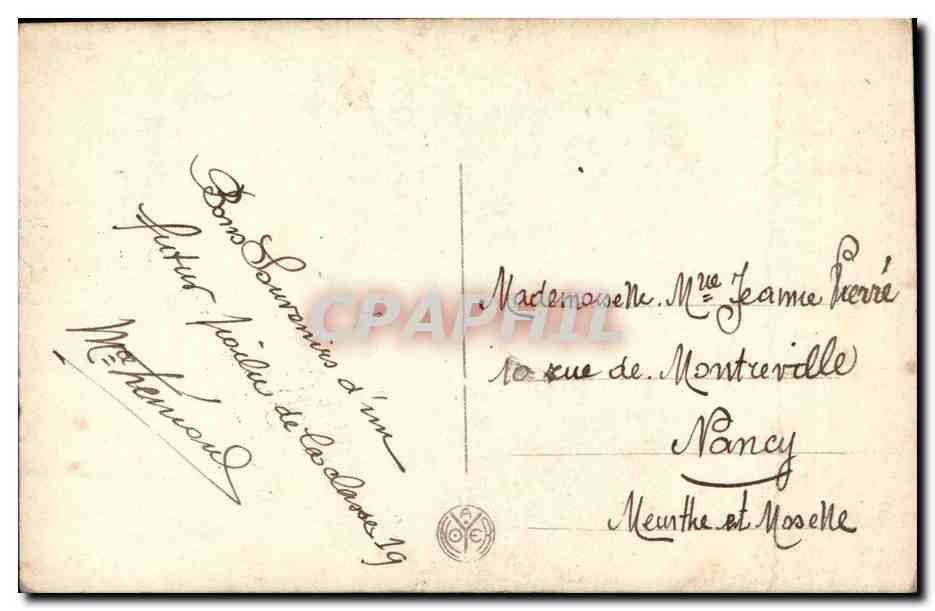 Bons Souvenirs d'un
futur poilu de la classe 19
Mademoiselle Mlle Jeanne Pierré
10 rue de Montreville
Nancy
Meurthe et Moselle
CPAPHIL